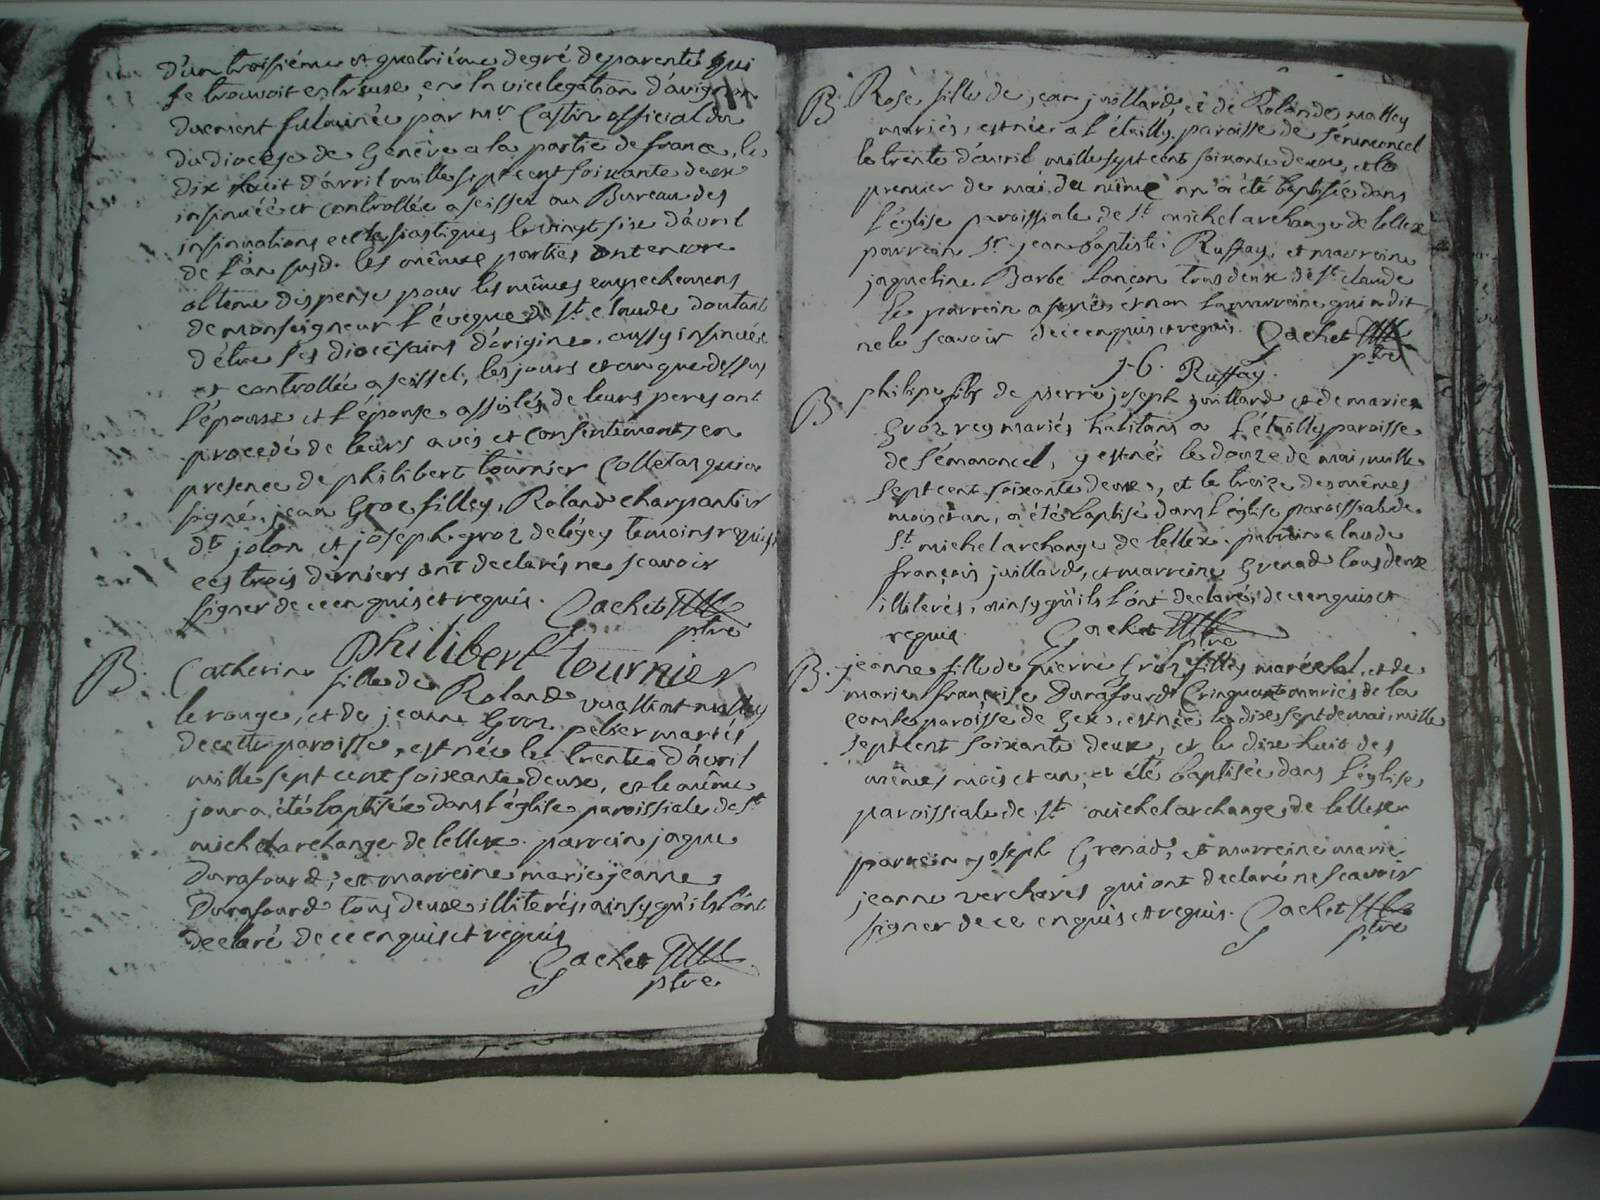 d'un troisiéme et quatriéme degré de parenté qui
se trouvoit entr'eux, en la vicelegation d'avignon
duement fulminée par mr Castin official du
du diocese de Genéve a la partie de france, le
dix huit d'avril mille sept cent soixante deux
insinuée et controllée a seissel au Bureau des
insinuations ecclesiastiques le vingt six d'avril
de l'an susd. les mêmes parties ont encore
obtenu dispense pour les mêmes empechemens
de monseigneur l'évêque de St claude d'autant
d'être ses diocésains d'origine, aussy insinuée
et controllée a seissel, les jours et an que dessus
l'épouse et l'épouse assistés de leurs peres ont
procedé de leurs avis et consentiments en
presence de philibert tournier Colleta qui a
signé, jean Groz filley, Roland charpantier
dt jolan et joseph groz delégey temoins requis,
ces trois derniers ont declarés ne scavoir
signer de ce enquis et requis. Gachet
ptre
philibert tournier
B. Catherine fille de Roland vuaillat
le rouge, et de jeanne Groz pelser mariés
de cette paroisse, est née le trente d'avril
mille sept cent soixante deux, et le même
jour a été baptisée dans l'église paroissiale de St
michel archange de lellex. parrein jaque
Durafourd, et marreine marie jeanne
Durafourd tous deux illiterés, ainsy qu'ils l'ont
declaré de ce enquis et requis
Gachet
ptre
B. Rose fille de jean juillard, et de Rolande malley
mariés, est née a l'étuilly paroisse de sémoncel
le trente d'avril mille sept cent soixante deux, et le
premier de mai du même an a été baptisée dans
l'église paroissiale de St michel archange de lellex
parrein Sr jean baptiste Ruffay, et marreine
jaqueline Barbe Lançon tous deux de St claude
le parrein a signés et non la marreine qui a dit
ne le scavoir de ce enquis et requis. Gachet
ptre
J. G. Ruffay.
B. philipe fils de pierre joseph juillard et de marie
Groz rey mariés habitans a l'étuilly paroisse
de sémoncel, y est né le douze de mai, mille
sept cent soixante deux, et le treize des mêmes
mois et an, a été baptisé dans l'église paroissiale de
St michel archange de lellex. parrein claude
françois juillard, et marreine Grenad tous deux
illiterés, ainsy qu'ils l'ont declaré, de ce enquis et
requis. Gachet
ptre
B. jeanne fille de pierre Groz filley maréchal, et de
marie françoise Durafourd Cringuant mariés de la
combe paroisse de Gex, est née le dix sept de mai, mille
sept cent soixante deux, et le dix huit des
mêmes mois et an, a été baptisée dans l'église
paroissiale de St michel archange de lellex
parrein joseph Grenad, et marreine marie
jeanne vercheres qui ont declaré ne scavoir
signer de ce enquis et requis. Gachet
ptre